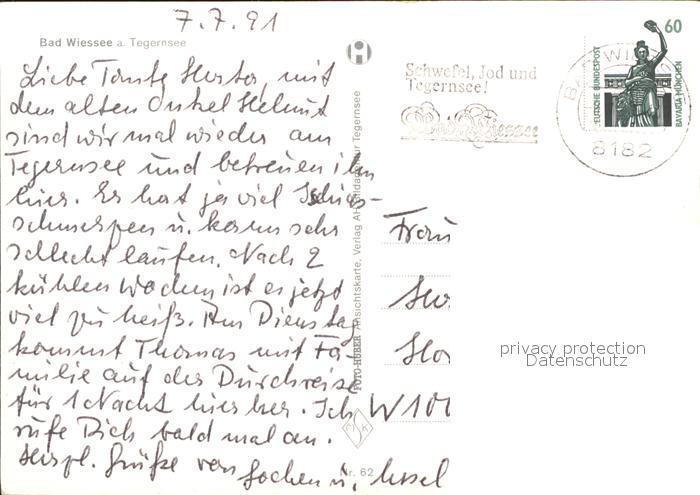 7.7.91
Bad Wiessee a. Tegernsee
Liebe Tante Herta, mit
dem alten Onkel Helmut
sind wir mal wieder am
Tegernsee und betreuen ihn
hier. Er hat ja viel Ischias-
schmerzen u. kann sehr
schlecht laufen. Nach 2
kühlen Wochen ist es jetzt
viel zu heiß. Am Dienstag
kommt Thomas mit Fa-
milie auf der Durchreise
für 1 Nacht hierher. Ich
rufe Dich bald mal an.
Herzl. Grüße von
Jochen u.
FOTO-HUBER Ansichtskarte, Verlag
Tegernsee
Nr. 62
Schwefel, Jod und
Tegernsee!
Bad Wiessee
BAD WI
8182
60
DEUTSCHE BUNDESPOST
BAVARIA MÜNCHEN
Frau
W 100
privacy protection
Datenschutz